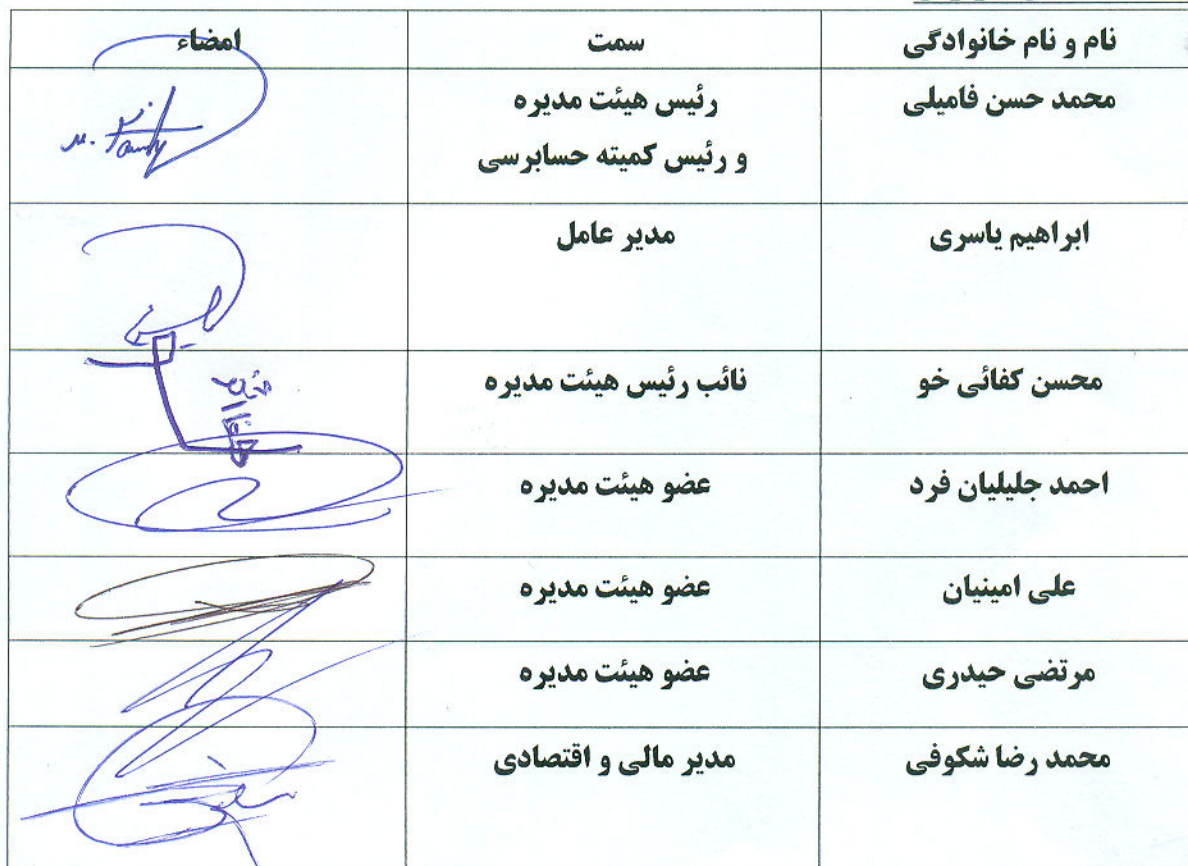 نام و نام خانوادگی سمت امضاء
محمد حسن فامیلی رئیس هیئت مدیره
و رئیس کمیته حسابرسی
ابراهیم یاسری مدیر عامل
محسن کفائی خو نائب رئیس هیئت مدیره
احمد جلیلیان فرد عضو هیئت مدیره
علی امینیان عضو هیئت مدیره
مرتضی حیدری عضو هیئت مدیره
محمد رضا شکوفی مدیر مالی و اقتصادی